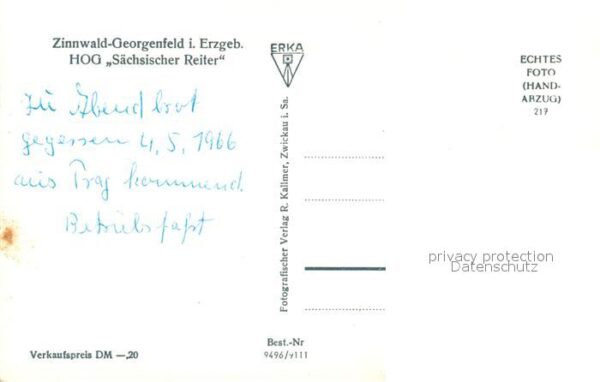 Zinnwald-Georgenfeld i. Erzgeb.
HOG „Sächsischer Reiter“
ERKA
ECHTES
FOTO
(HAND-
ABZUG)
217
Zu Abendbrot
gegessen 4. 5. 1966
aus Prag kommend.
Betriebsfahrt
Fotografischer Verlag R. Kallmer, Zwickau i. Sa.
privacy protection
Datenschutz
Best.-Nr
9496/VIII
Verkaufspreis DM —,20